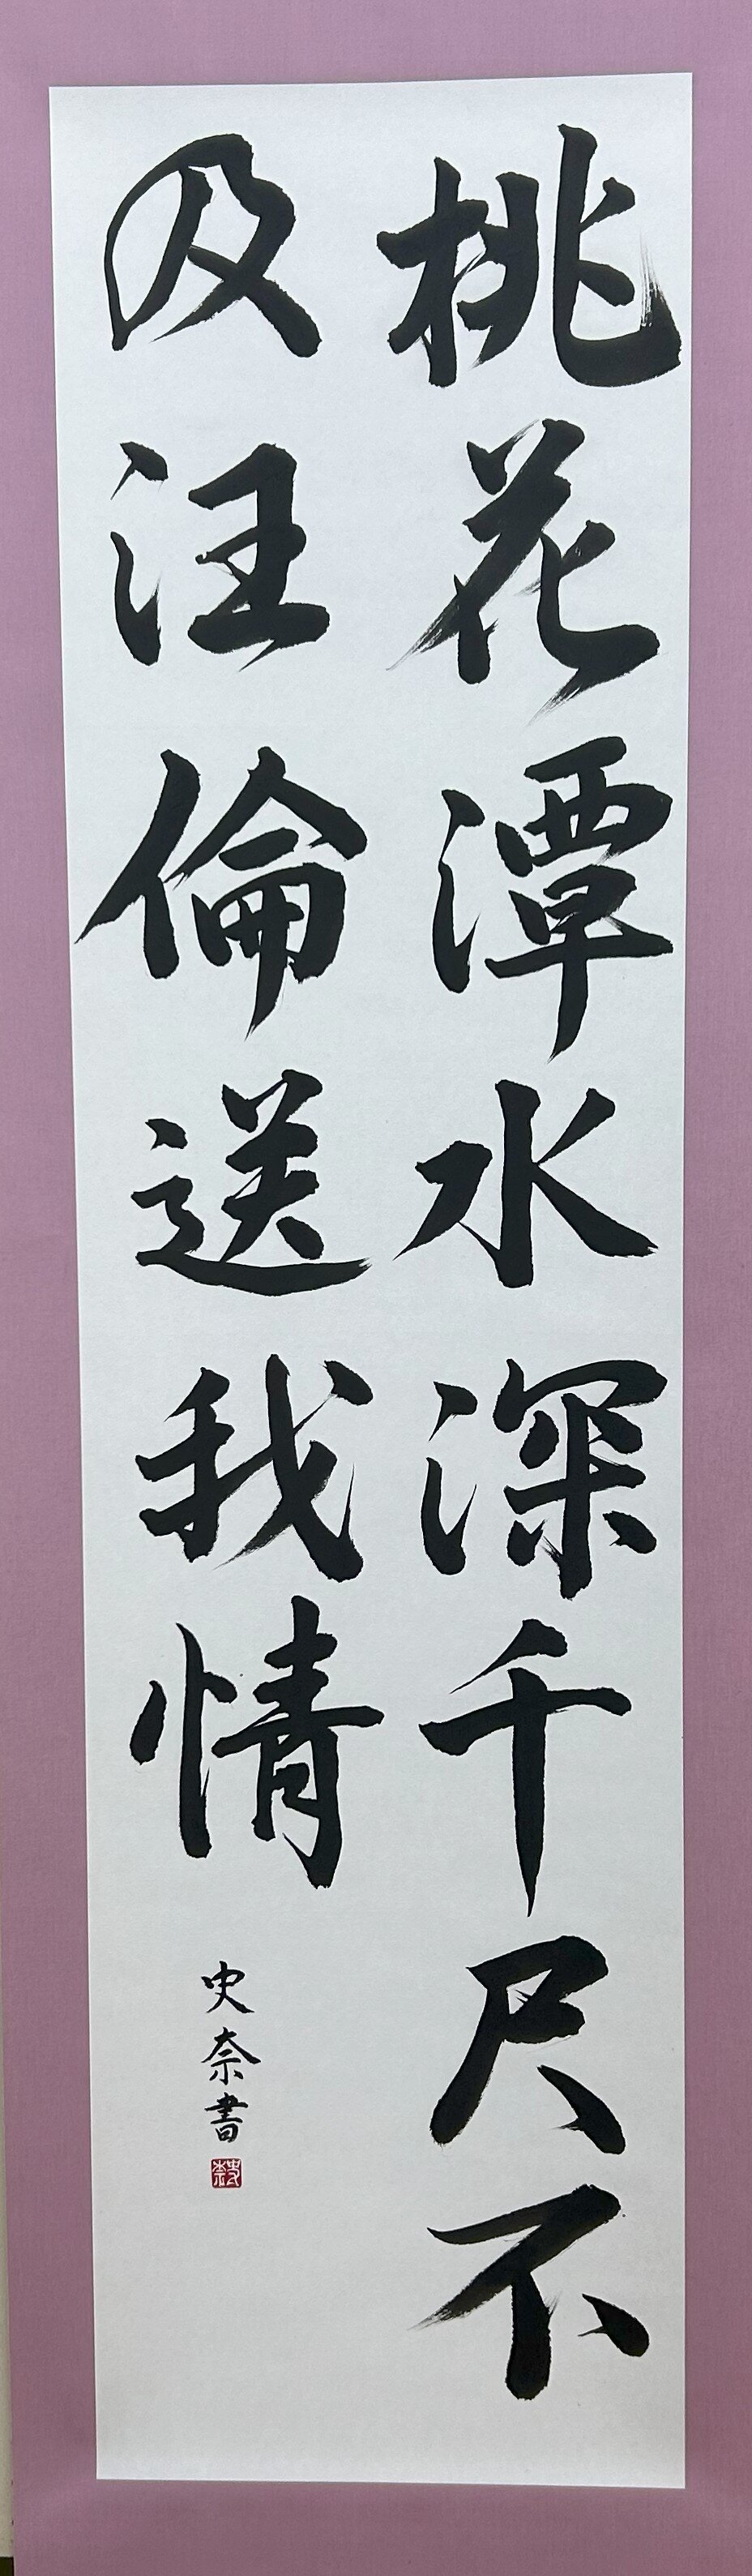 桃花潭水深千尺不
及汪倫送我情
史奈書
史奈